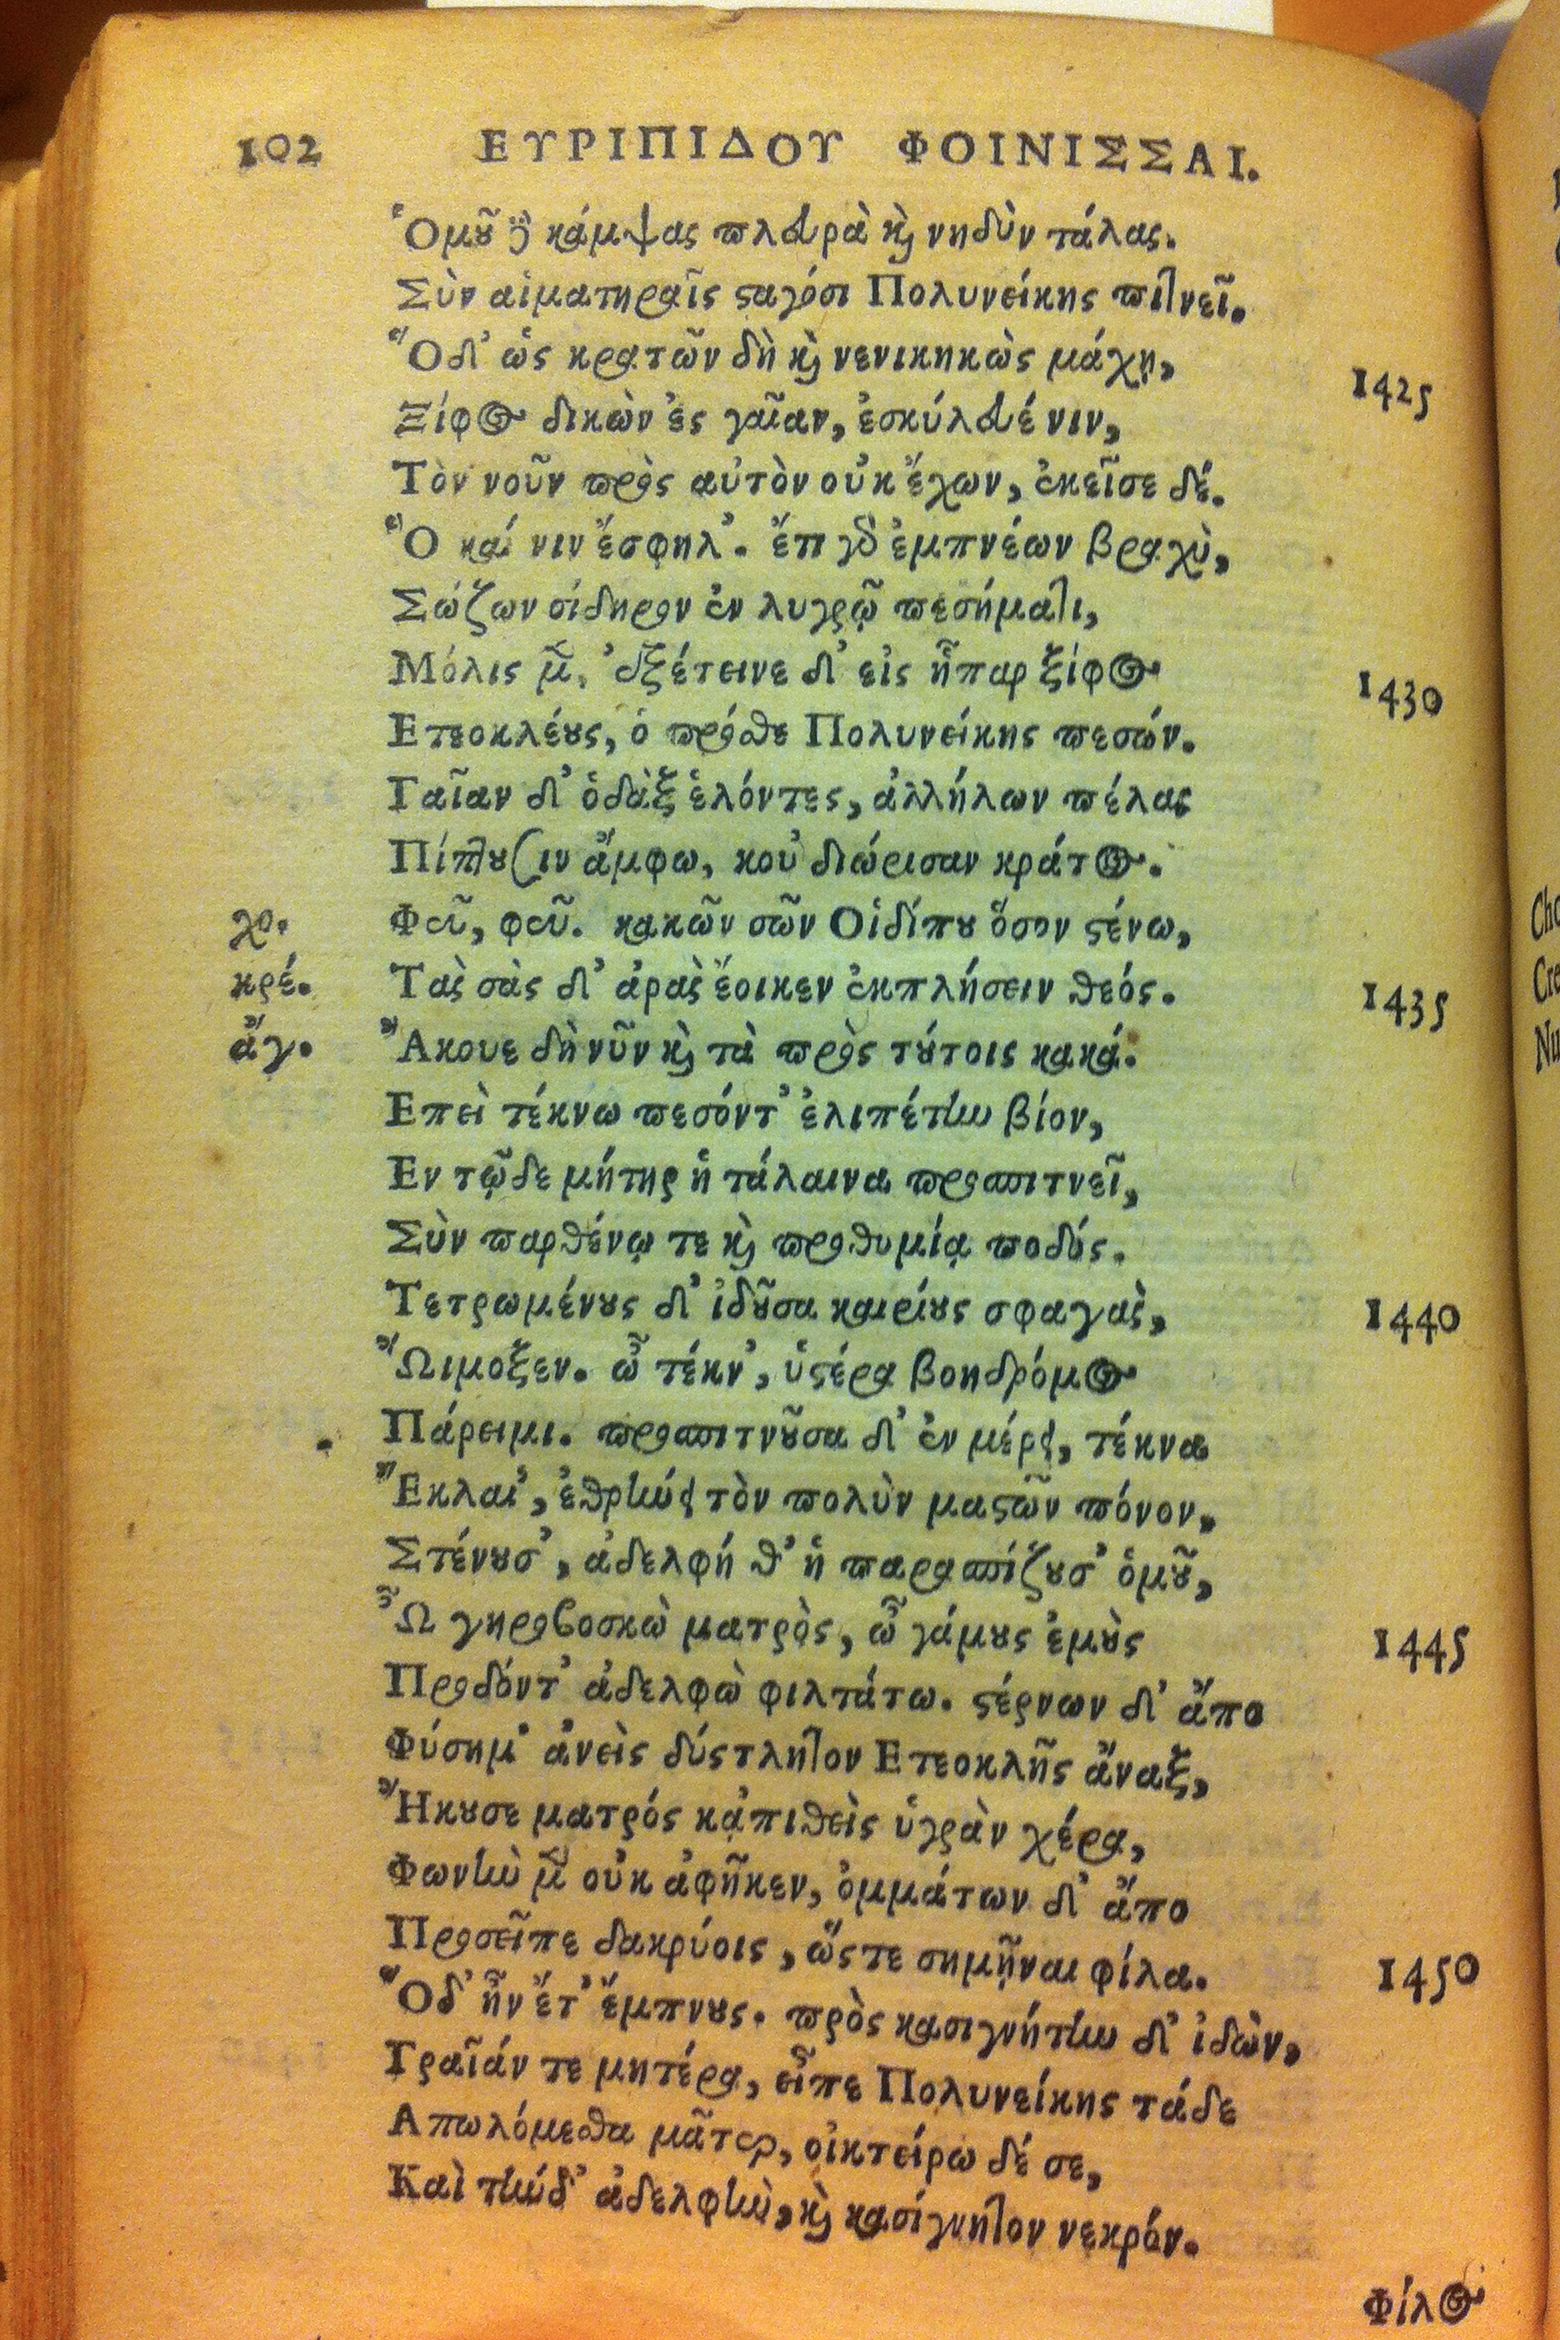 102 ΕΥΡΙΠΙΔΟΥ ΦΟΙΝΙΣΣΑΙ.
Ὁμοῦ δὲ κάμψας πλευρὰ καὶ νηδὺν τάλας.
Σὺν αἱματηραῖς σαγόσι Πολυνείκης πιτνεῖ.
Ὁ δ' ὡς κρατῶν δὴ καὶ νενικηκὼς μάχῃ, 1425
Ξίφος δικὼν ἐς γαῖαν, ἐσκύλευέ νιν,
Τὸν νοῦν πρὸς αὐτὸν οὐκ ἔχων, ἐκεῖσε δέ.
Ὃ καί νιν ἔσφηλ'. ἔτι γὰρ ἐμπνέων βραχὺ,
Σώζων σίδηρον ἐν λυγρῷ πεσήματι,
Μόλις μὲν, ἐξέτεινε δ' εἰς ἧπαρ ξίφος 1430
Ετεοκλέους, ὁ πρόσθε Πολυνείκης πεσών.
Γαῖαν δ' ὀδὰξ ἑλόντες, ἀλλήλων πέλας
Πίπτουσιν ἄμφω, κοὐ διώρισαν κράτος.
χο. Φεῦ, φεῦ. κακῶν σῶν Οἰδίπου ὅσον στένω,
κρέ. Τὰς σὰς δ' ἀρὰς ἔοικεν ἐκπλήσειν θεός. 1435
ἄγ. Ἄκουε δὴ νῦν καὶ τὰ πρὸς τούτοις κακά.
Επεὶ τέκνω πεσόντ' ἐλιπέτην βίον,
Εν τῷδε μήτηρ ἡ τάλαινα προσπιτνεῖ,
Σὺν παρθένῳ τε καὶ προθυμίᾳ ποδός.
Τετρωμένους δ' ἰδοῦσα καιρίους σφαγὰς, 1440
Ὤιμοξεν. ὦ τέκν', ὑστέρα βοηδρόμος
Πάρειμι. προσπιτνοῦσα δ' ἐν μέρει, τέκνα
Ἔκλαι', ἐθρήνει τὸν πολὺν μαστῶν πόνον,
Στένουσ', ἀδελφή θ' ἡ παρασπίζουσ' ὁμοῦ,
Ὦ γηροβοσκὼ ματρὸς, ὦ γάμους ἐμοὺς 1445
Προδόντ' ἀδελφὼ φιλτάτω. στέρνων δ' ἄπο
Φύσημ' ἀνεὶς δύστλητον Ετεοκλῆς ἄναξ,
Ἤκουσε ματρός κἀπιθεὶς ὑγρὰν χέρα,
Φωνὴν μὲν οὐκ ἀφῆκεν, ὀμμάτων δ' ἄπο
Προσεῖπε δακρύοις, ὥστε σημῆναι φίλα. 1450
Ὅδ' ἦν ἔτ' ἔμπνους. πρὸς κασιγνήτην δ' ἰδὼν,
Γραῖάν τε μητέρα, εἶπε Πολυνείκης τάδε
Απωλόμεθα μᾶτερ, οἰκτείρω δέ σε,
Καὶ τήνδ' ἀδελφὴν, καὶ κασίγνητον νεκρόν.
Φίλος